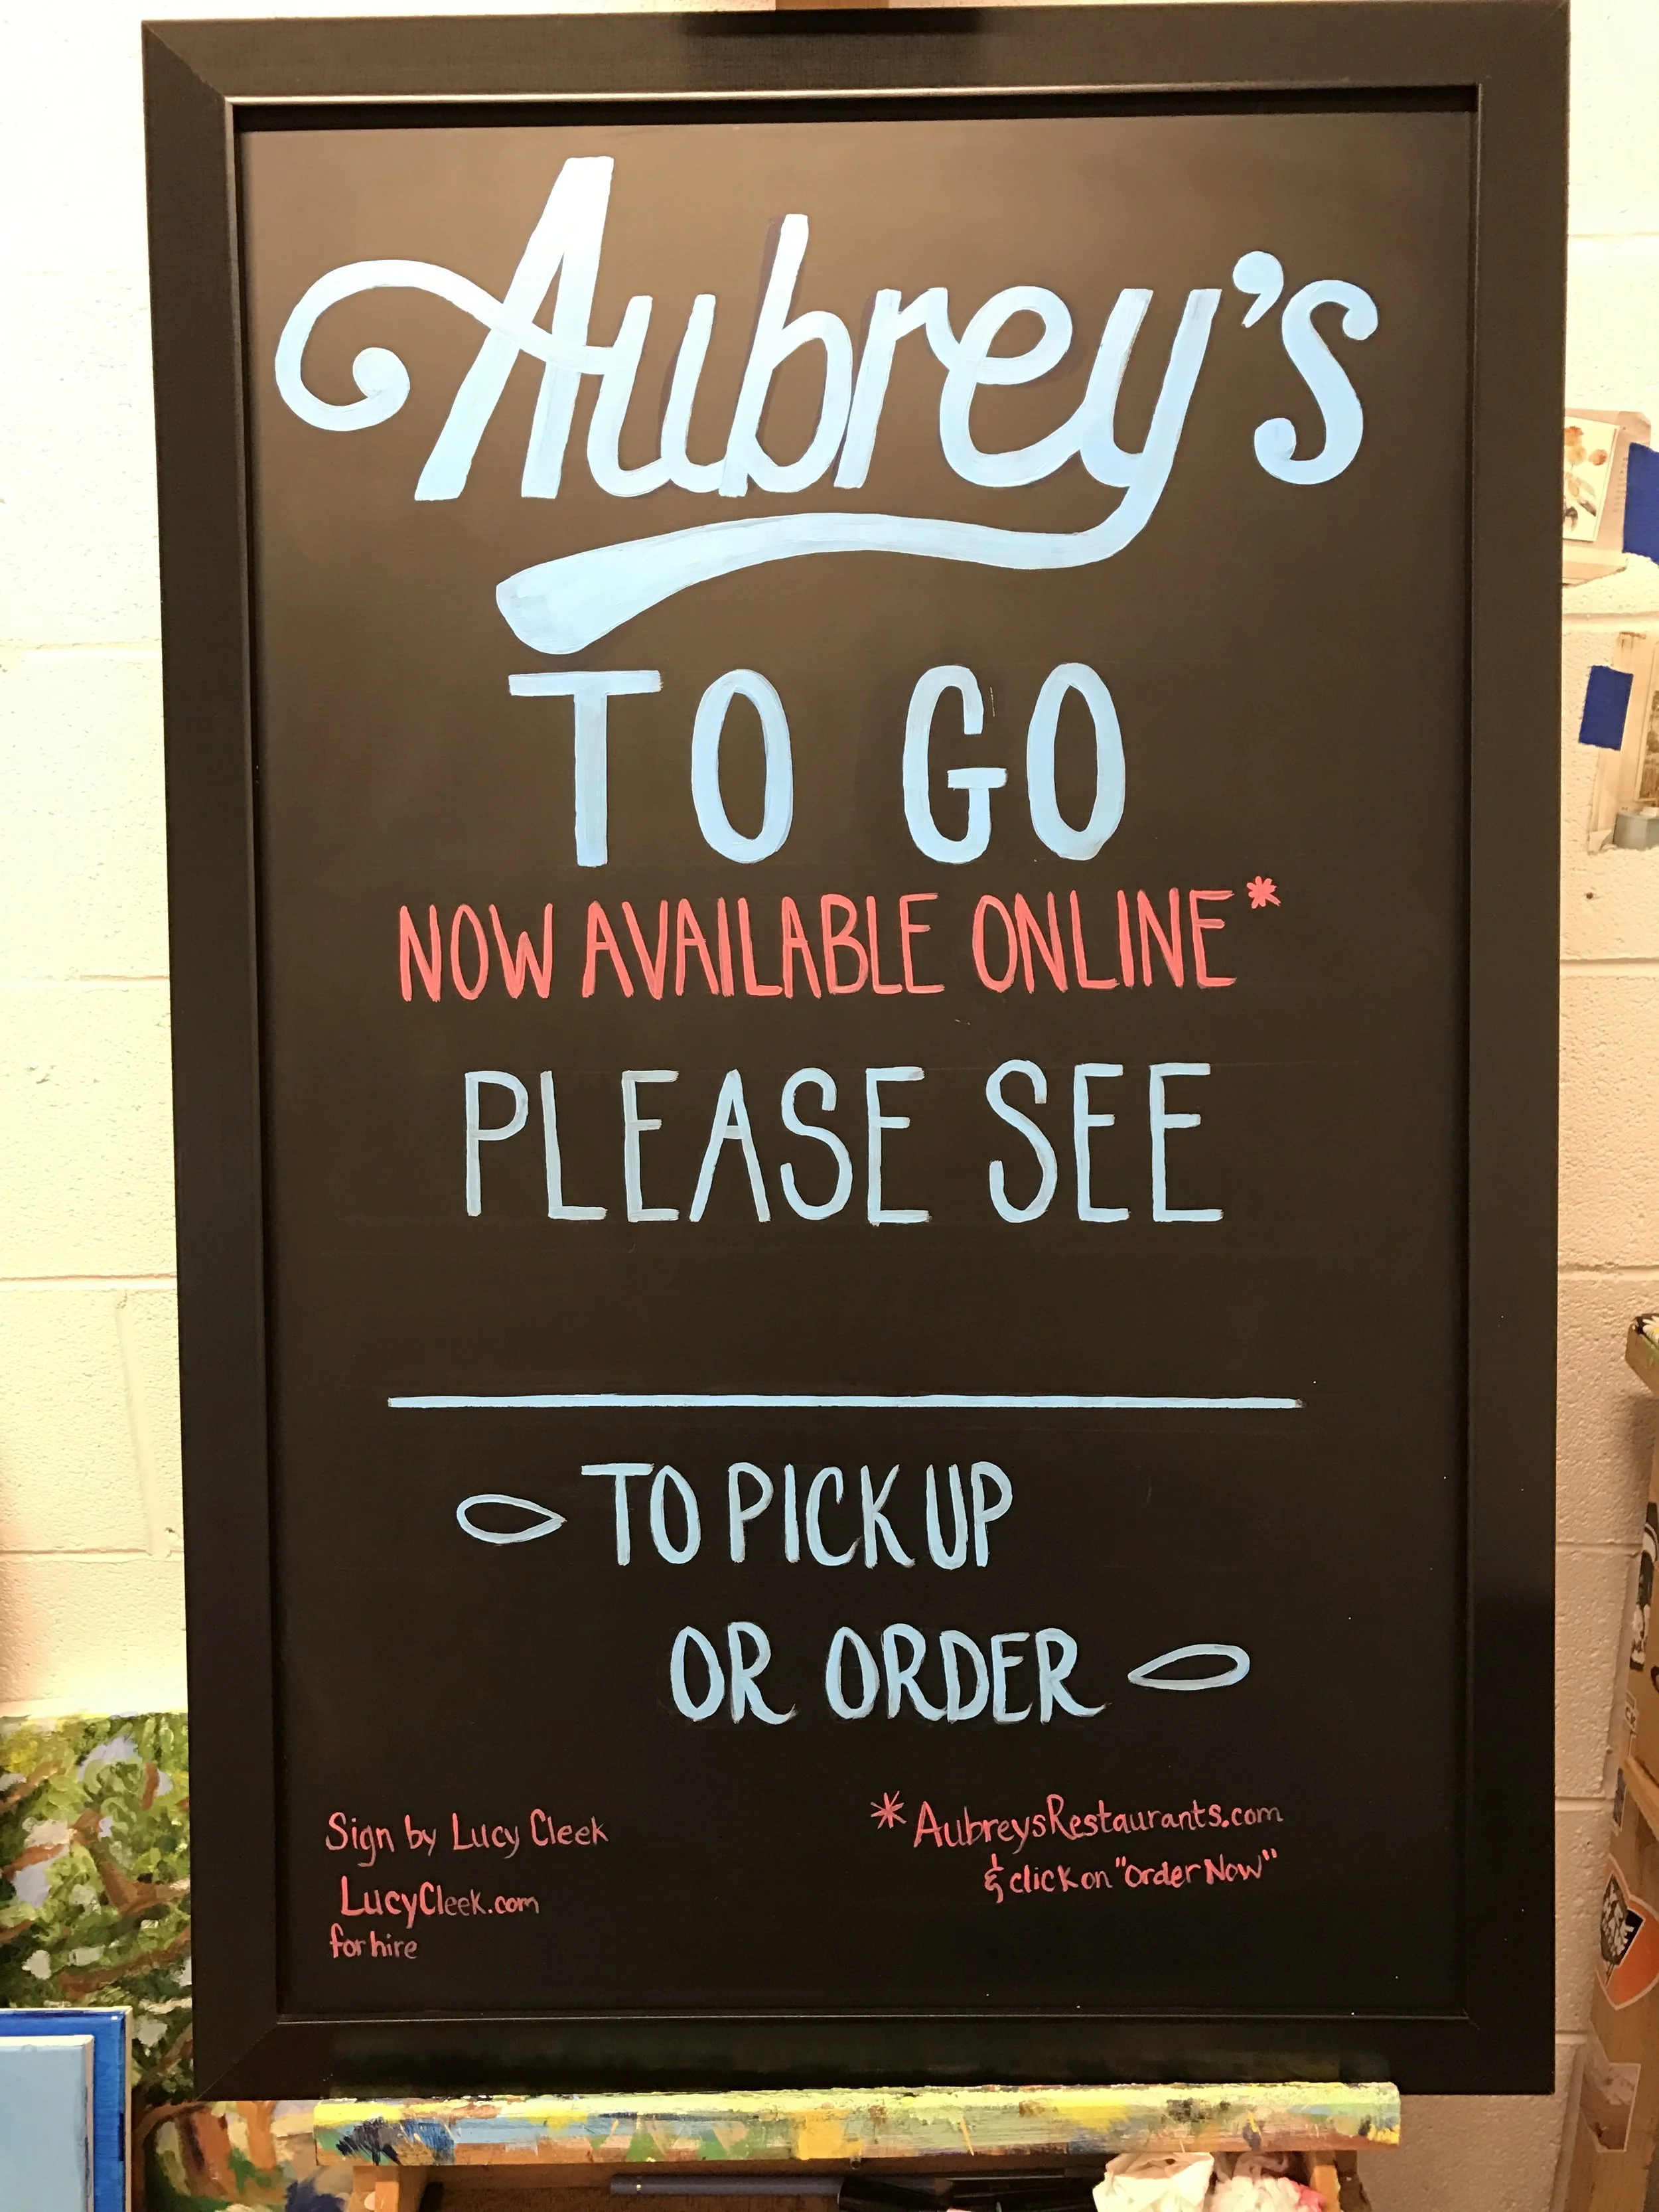 Aubrey's
TO GO
NOW AVAILABLE ONLINE*
PLEASE SEE
TO PICK UP
OR ORDER
Sign by Lucy Cleek
LucyCleek.com
for hire
*AubreysRestaurants.com
& click on "Order Now"